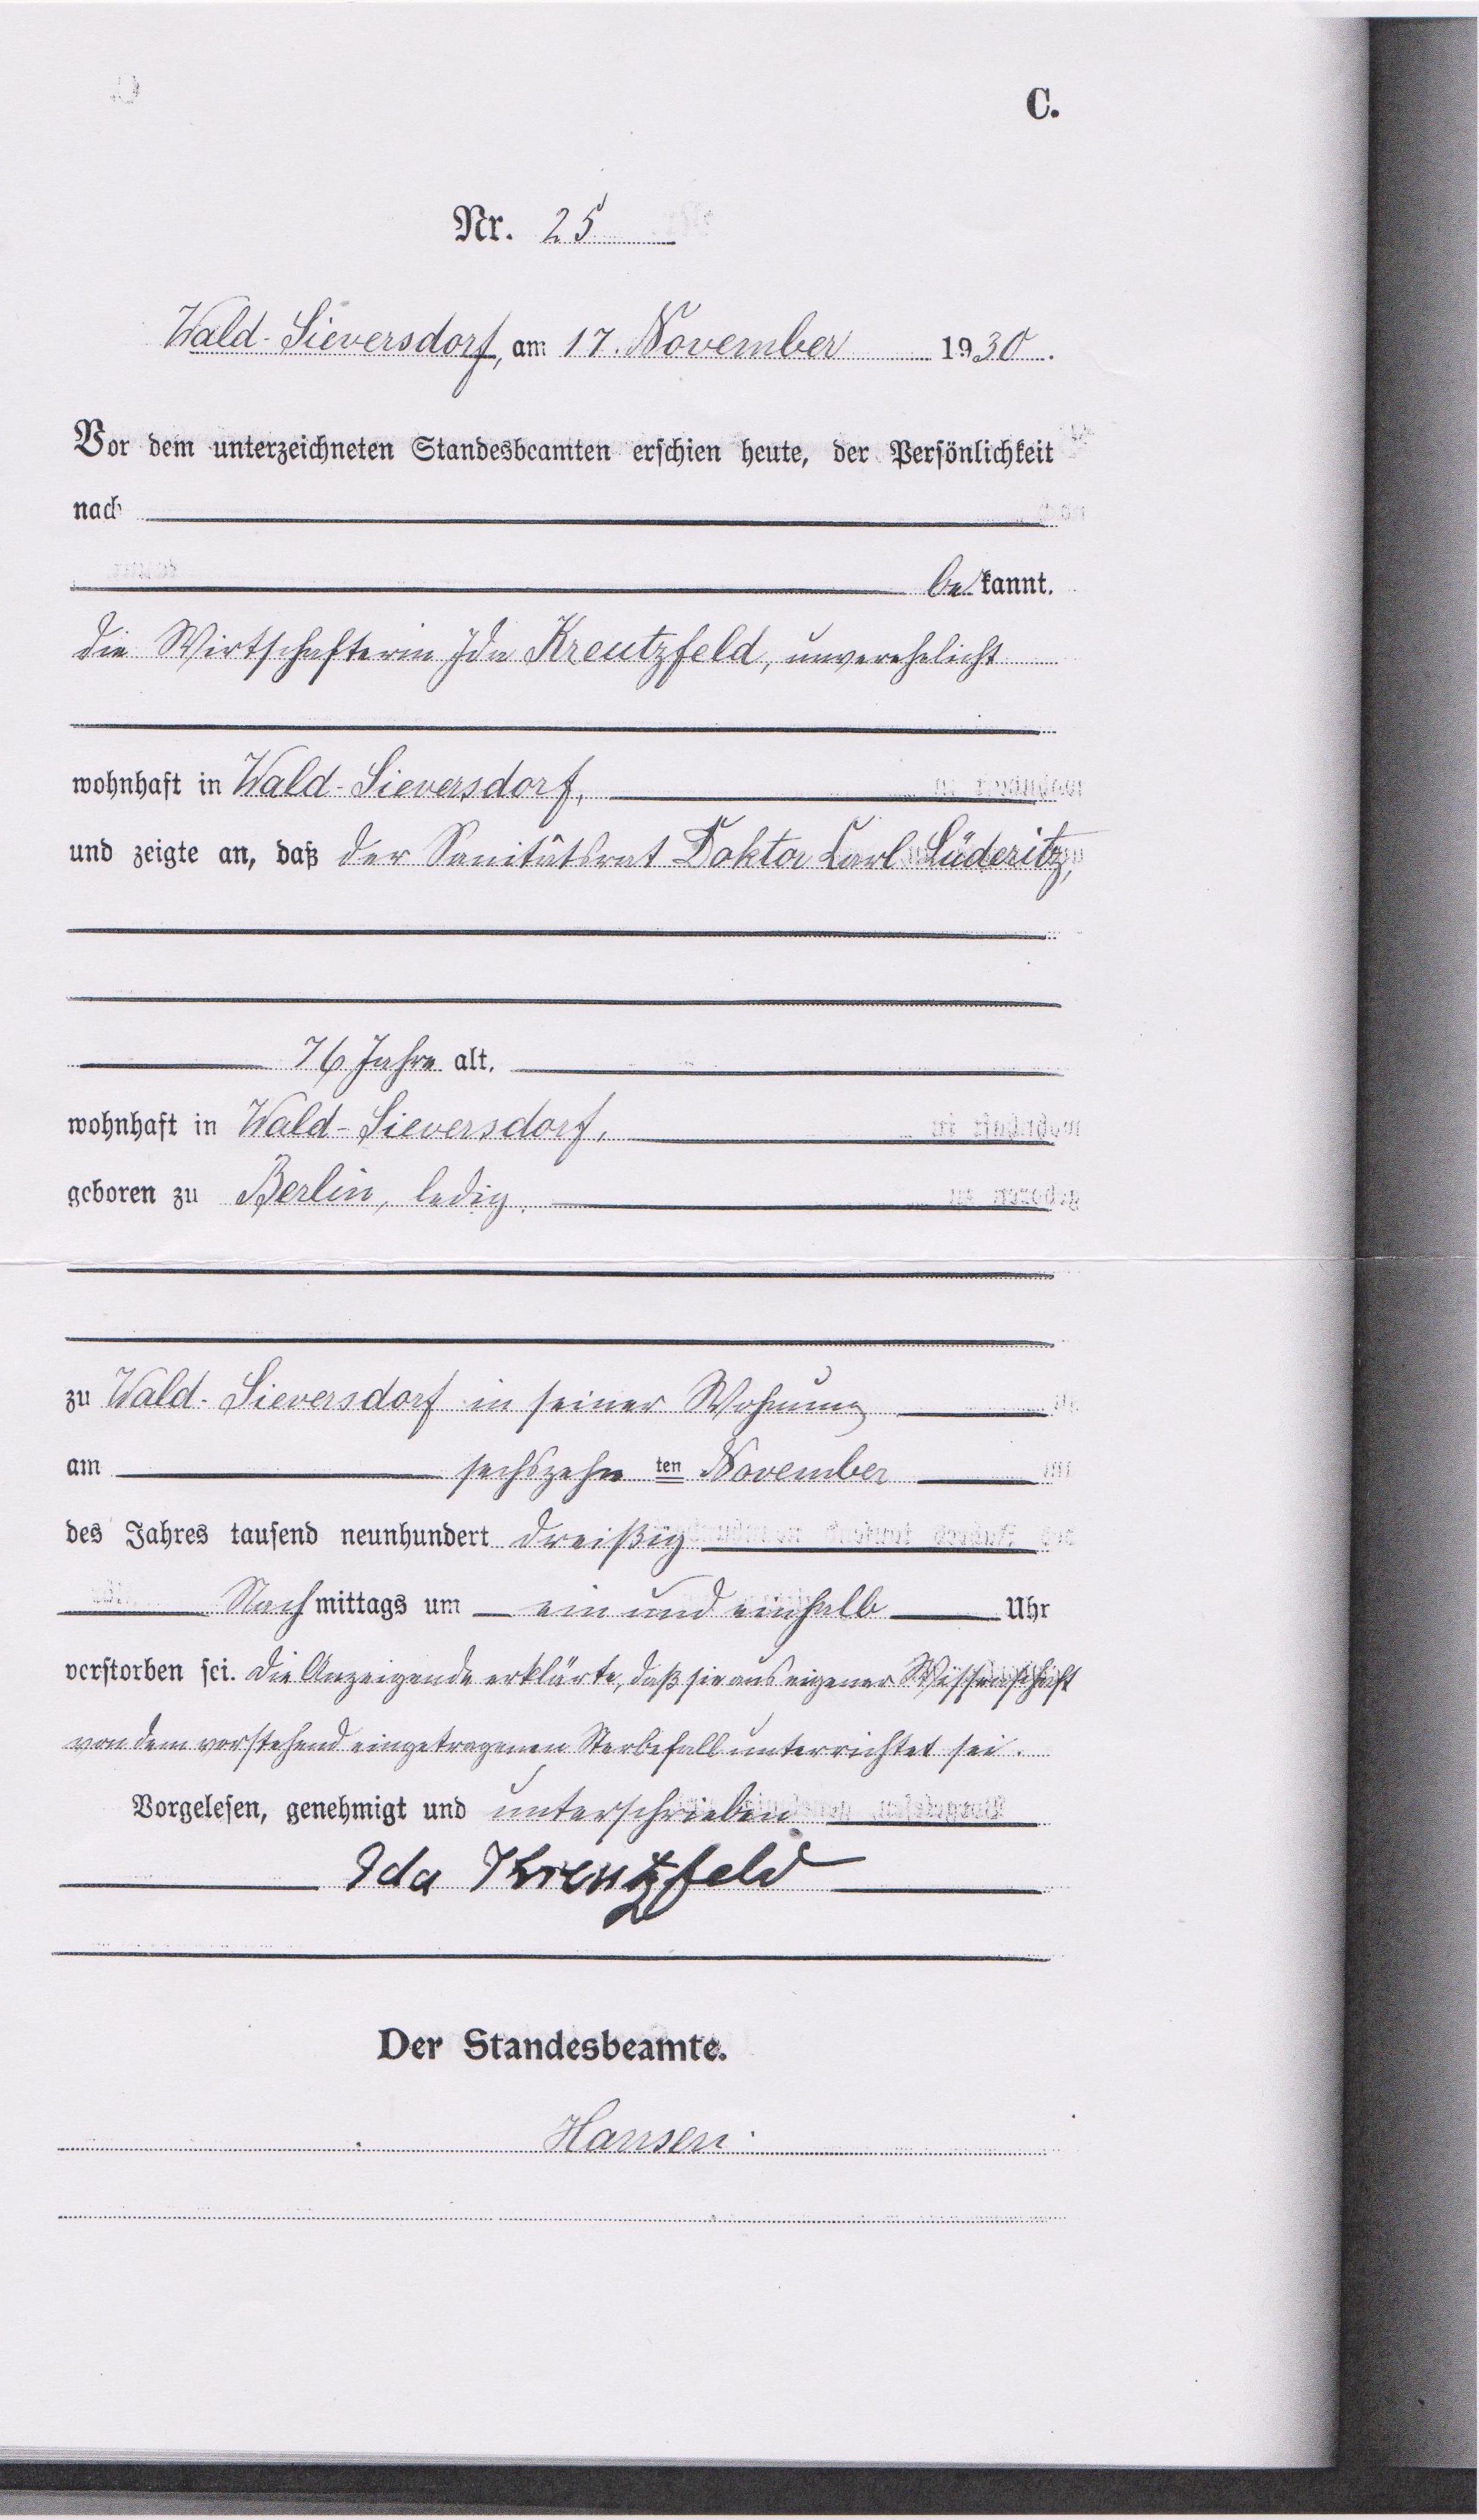 C.
Nr. 25
Wald-Sieversdorf, am 17. November 1930.
Vor dem unterzeichneten Standesbeamten erschien heute, der Persönlichkeit
nach
bekannt.
die Wirtschafterin Ida Kreutzfeld, unverehelicht
wohnhaft in Wald-Sieversdorf,
und zeigte an, daß der Sanitätsrat Doktor Carl Lüderitz,
76 Jahre alt,
wohnhaft in Wald-Sieversdorf,
geboren zu Berlin, ledig,
zu Wald-Sieversdorf in seiner Wohnung
am sechszehn ten November
des Jahres tausend neunhundert dreißig
Nachmittags um ein und einhalb Uhr
verstorben sei. Die Anzeigende erklärte, daß sie aus eigener Wissenschaft
von dem vorstehend eingetragenen Sterbefall unterrichtet sei.
Vorgelesen, genehmigt und unterschrieben
Ida Kreutzfeld
Der Standesbeamte.
Hansen.